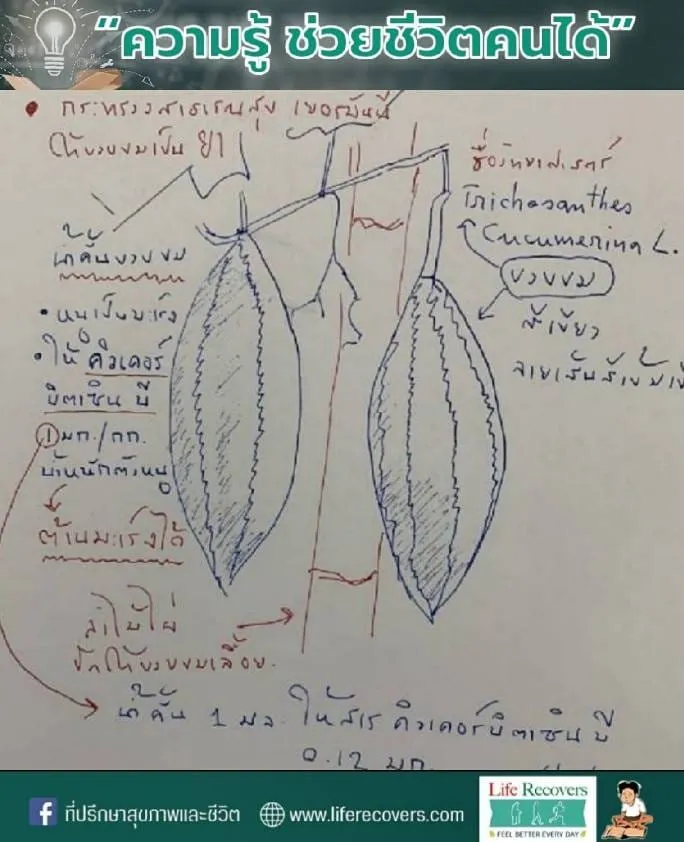 “ความรู้ ช่วยชีวิตคนได้”
• กระทรวงสาธารณสุข
ให้บวบขมเป็น ยา
ชื่อวิทยาศาสตร์
Trichosanthes
Cucumerina L.
บวบขม
สีเขียว
น้ำคั้นบวบขม
• หนูเป็นมะเร็ง
• ให้ คิวเคอร์
บิตาซิน บี
1 มก./กก.
น้ำหนักตัวหนู
ต้านมะเร็งได้
ลำไม้ไผ่
ปักให้บวบขมเลื้อย.
น้ำคั้น 1 มล. ให้สาร คิวเคอร์บิตาซิน บี
0.12 มก.
ที่ปรึกษาสุขภาพและชีวิต
www.liferecovers.com
Life Recovers
FEEL BETTER EVERY DAY